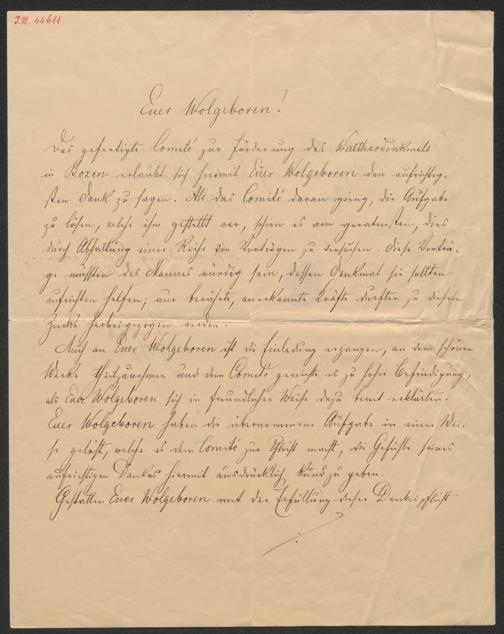 J.N. 44611
Euer Wolgeboren!
Das gefertigte Comité zur Förderung des Waltherdenkmals
in Bozen erlaubt sich hiermit Euer Wolgeboren den aufrichtig-
sten Dank zu sagen. Als das Comité daran gieng, die Aufgabe
zu lösen, welche ihm gestellt war, schien es am geratensten, dies
durch Abhaltung einer Reihe von Vorträgen zu versuchen. Diese Vorträ-
ge mussten des Mannes würdig sein, dessen Denkmal sie sollten
aufrichten helfen; nur bewährte, anerkannte Kräfte durften zu diesem
Zwecke herbeigezogen werden.
Auch an Euer Wolgeboren ist die Einladung ergangen, an dem schönen
Werke theilzunehmen und dem Comité gereicht es zu hoher Befriedigung,
als Euer Wolgeboren sich in freundlicher Weise dazu bereit erklärten.
Euer Wolgeboren haben die übernommene Aufgabe in einer Wei-
se gelöst, welche es dem Comité zur Pflicht macht, die Gefühle seines
aufrichtigen Dankes hiermit ausdrücklich kund zu geben.
Gestatten Euer Wolgeboren mit der Erfüllung dieser Dankespflicht